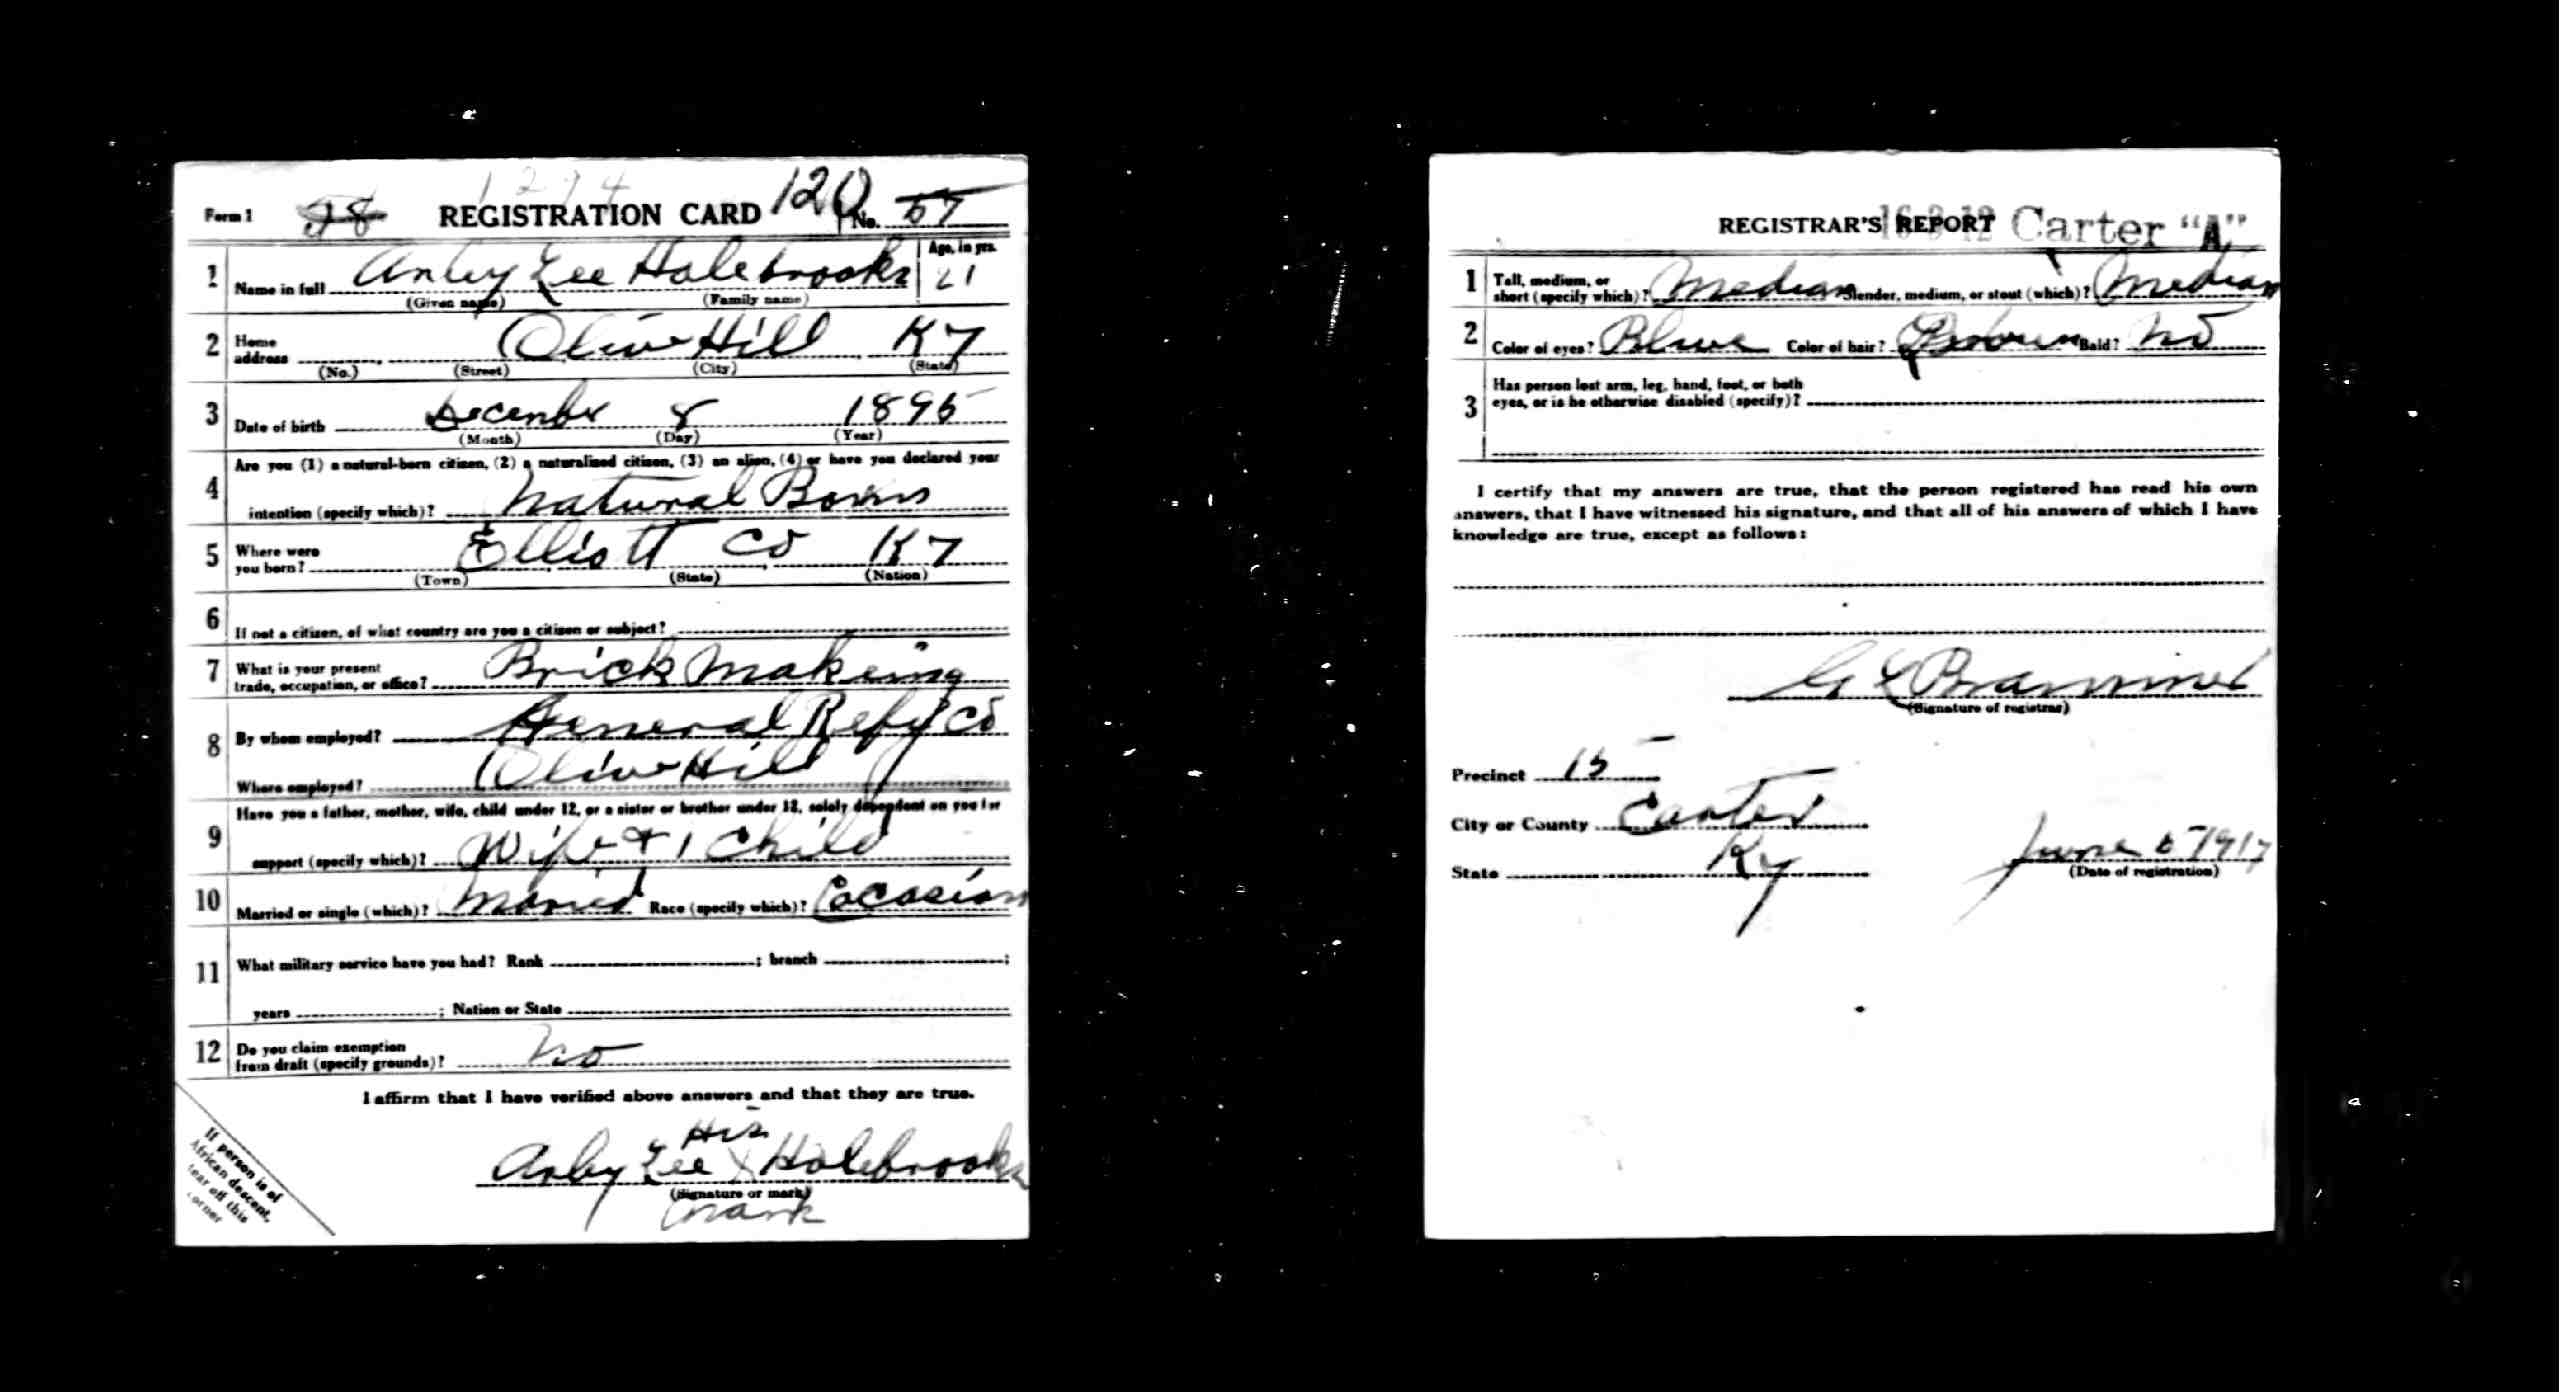 1294
Form 1 58 REGISTRATION CARD 120 No. 57
1 Name in full Arby Lee Holebrooks Age, in yrs. 21
(Given name) (Family name)
2 Home address Olive Hill Ky
(No.) (Street) (City) (State)
3 Date of birth December 8 1895
(Month) (Day) (Year)
Are you (1) a natural-born citizen, (2) a naturalized citizen, (3) an alien, (4) or have you declared your
4 intention (specify which)? Natural Born
5 Where were you born? Elliott Co Ky
(Town) (State) (Nation)
6 If not a citizen, of what country are you a citizen or subject?
7 What is your present trade, occupation, or office? Brick Makeing
8 By whom employed? General Refy Co
Where employed? Olive Hill
Have you a father, mother, wife, child under 12, or a sister or brother under 12, solely dependent on you for
9 support (specify which)? Wife + 1 Child
10 Married or single (which)? Maried Race (specify which)? Cocasian
11 What military service have you had? Rank ; branch ;
years ; Nation or State
12 Do you claim exemption from draft (specify grounds)? No
I affirm that I have verified above answers and that they are true.
His
Arby Lee X Holebrooks
(Signature or mark)
mark
If person is of
African descent,
tear off this
corner
REGISTRAR'S REPORT 16-3-12 Carter "A"
1 Tall, medium, or short (specify which)? Median Slender, medium, or stout (which)? Median
2 Color of eyes? Blue Color of hair? Brown Bald? No
3 Has person lost arm, leg, hand, foot, or both eyes, or is he otherwise disabled (specify)?
I certify that my answers are true, that the person registered has read his own
answers, that I have witnessed his signature, and that all of his answers of which I have
knowledge are true, except as follows:
G L Brammer
(Signature of registrar)
Precinct 15
City or County Carter
State Ky June 5 1917
(Date of registration)